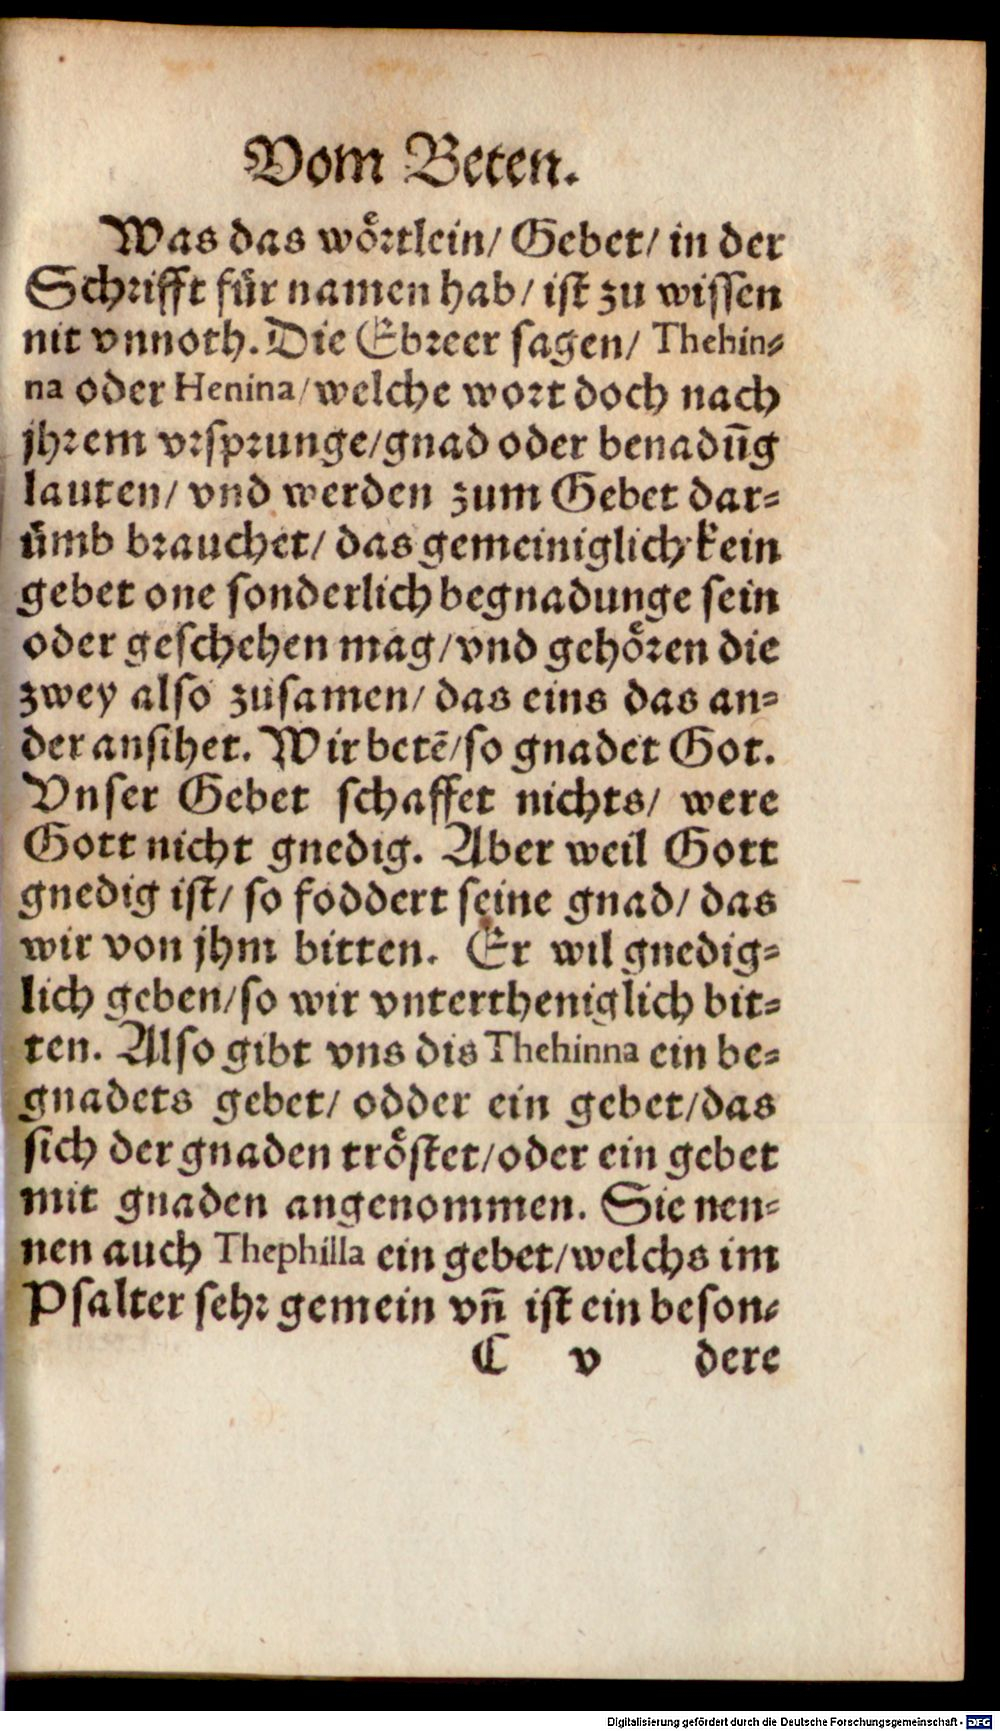 Vom Beten.
Was das woͤrtlein/ Gebet/ in der
Schrifft fuͤr namen hab/ ist zu wissen
nit vnnoth. Die Ebreer sagen/ Thehin-
na oder Henina/ welche wort doch nach
jhrem vrsprunge/ gnad oder benadūg
lauten/ vnd werden zum Gebet dar-
uͤmb brauchet/ das gemeiniglich kein
gebet one sonderlich begnadunge sein
oder geschehen mag/ vnd gehoͤren die
zwey also zusamen/ das eins das an-
der ansihet. Wir betē/ so gnadet Got.
Vnser Gebet schaffet nichts/ were
Gott nicht gnedig. Aber weil Gott
gnedig ist/ so foddert seine gnad/ das
wir von jhm bitten. Er wil gnedig-
lich geben/ so wir vntertheniglich bit-
ten. Also gibt vns dis Thehinna ein be-
gnadets gebet/ odder ein gebet/ das
sich der gnaden troͤstet/ oder ein gebet
mit gnaden angenommen. Sie nen-
nen auch Thephilla ein gebet/ welchs im
Psalter sehr gemein vn̄ ist ein beson-
C v dere
Digitalisierung gefördert durch die Deutsche Forschungsgemeinschaft - DFG